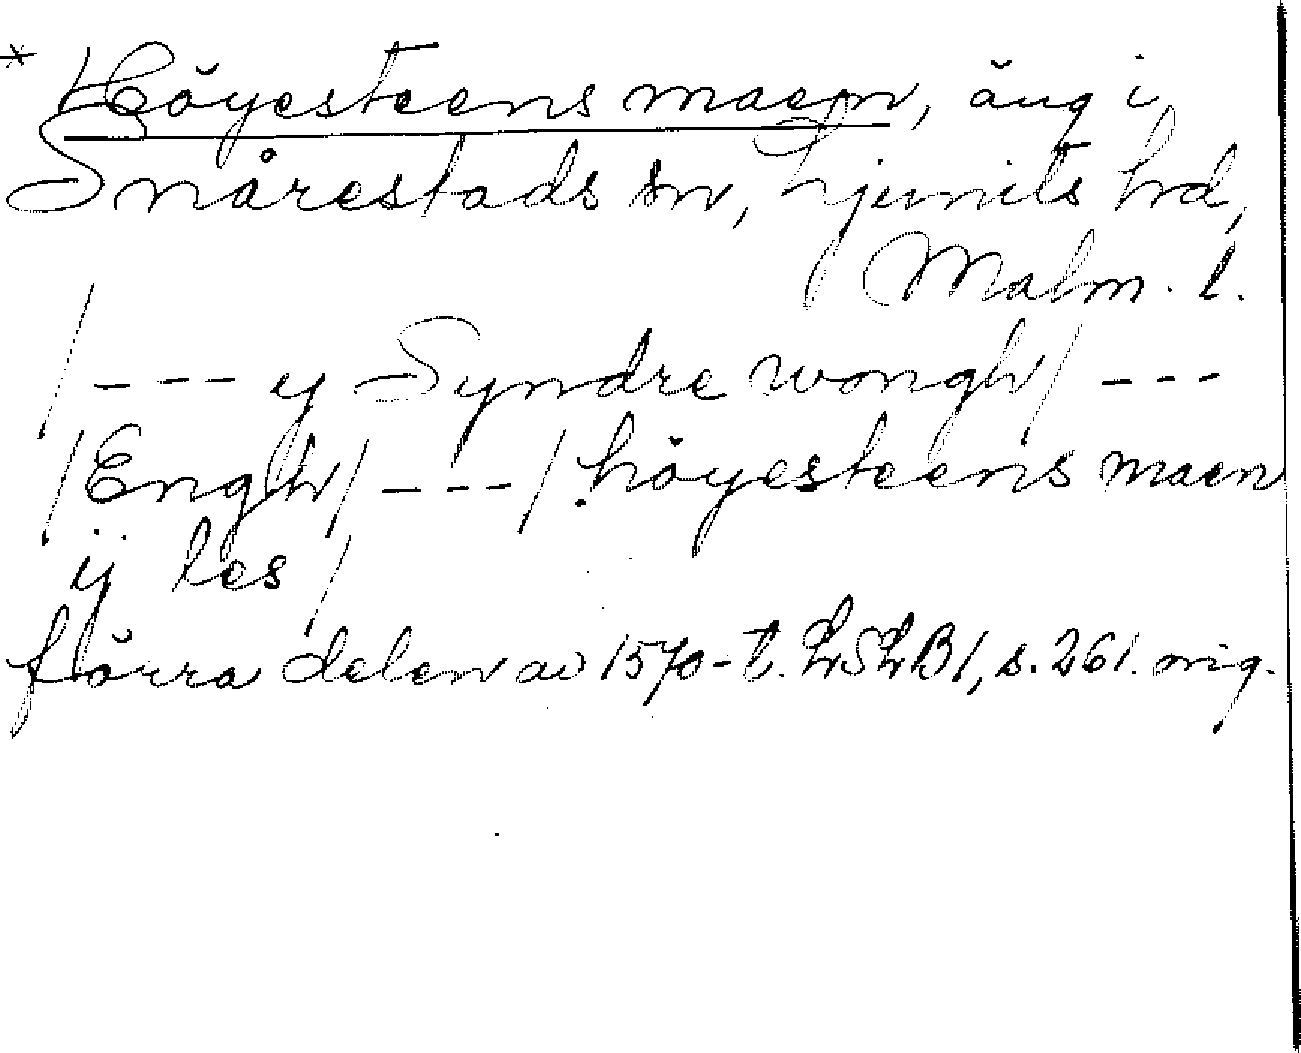 * Höyesteens maen, äng i
Snårestads sn, Ljunits hd,
Malm. l.
/--- y Syndre wongh/ ---
/Engh/ ---/ höyesteens maen
ÿ les /
förra delen av 1570-t. LSLB1, s. 261. orig.